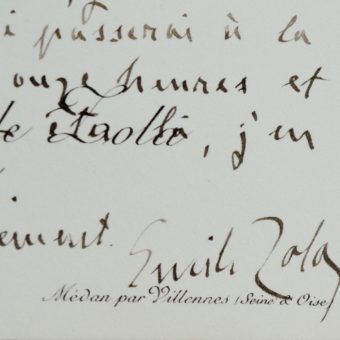 i passerai à la
onze heures et
j'en
ément.
Emile Zola
Médan par Villennes (Seine & Oise)